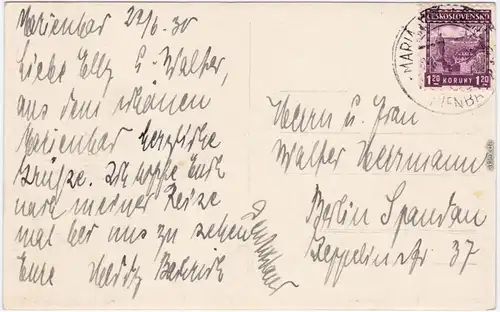 Marienbad 22/6.30
Liebe Elly u. Walter,
aus dem schönen
Marienbad herzliche
Grüße. Ich hoffe Euch
nach meiner Reise
mal bei uns zu sehen
Eure
Herrn u. Frau
Walter Hermann
Berlin Spandau
Zeppelinstr 37
ČESKOSLOVENSKO
1.20 KORUNY 1.20
MARIÁ